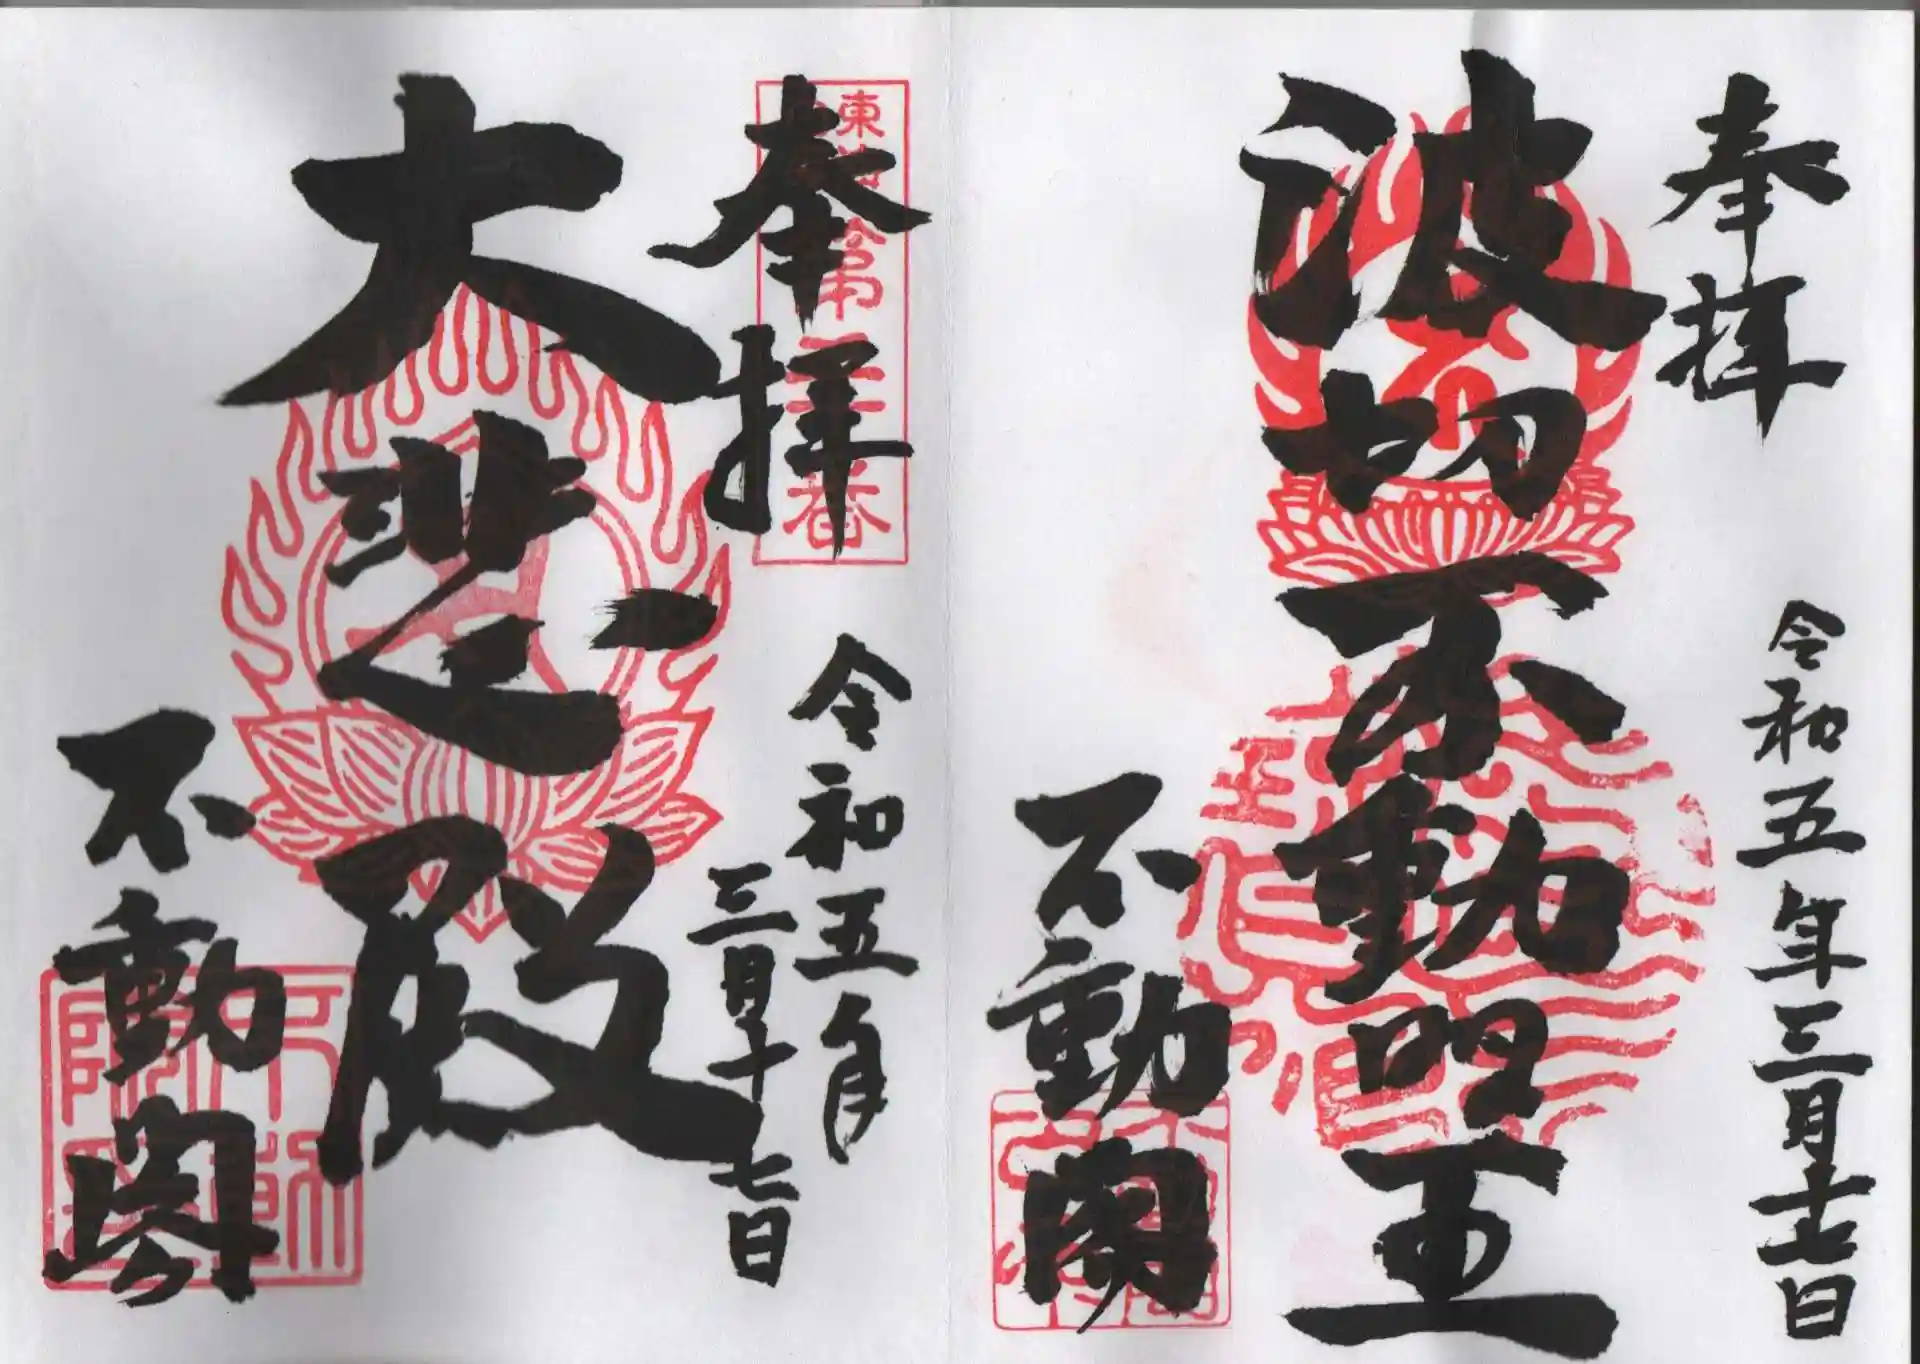 奉拝
令和五年三月十七日
波切不動明王
不動閣
東海第三番
奉拝
令和五年
三月十七日
大悲殿
不動閣